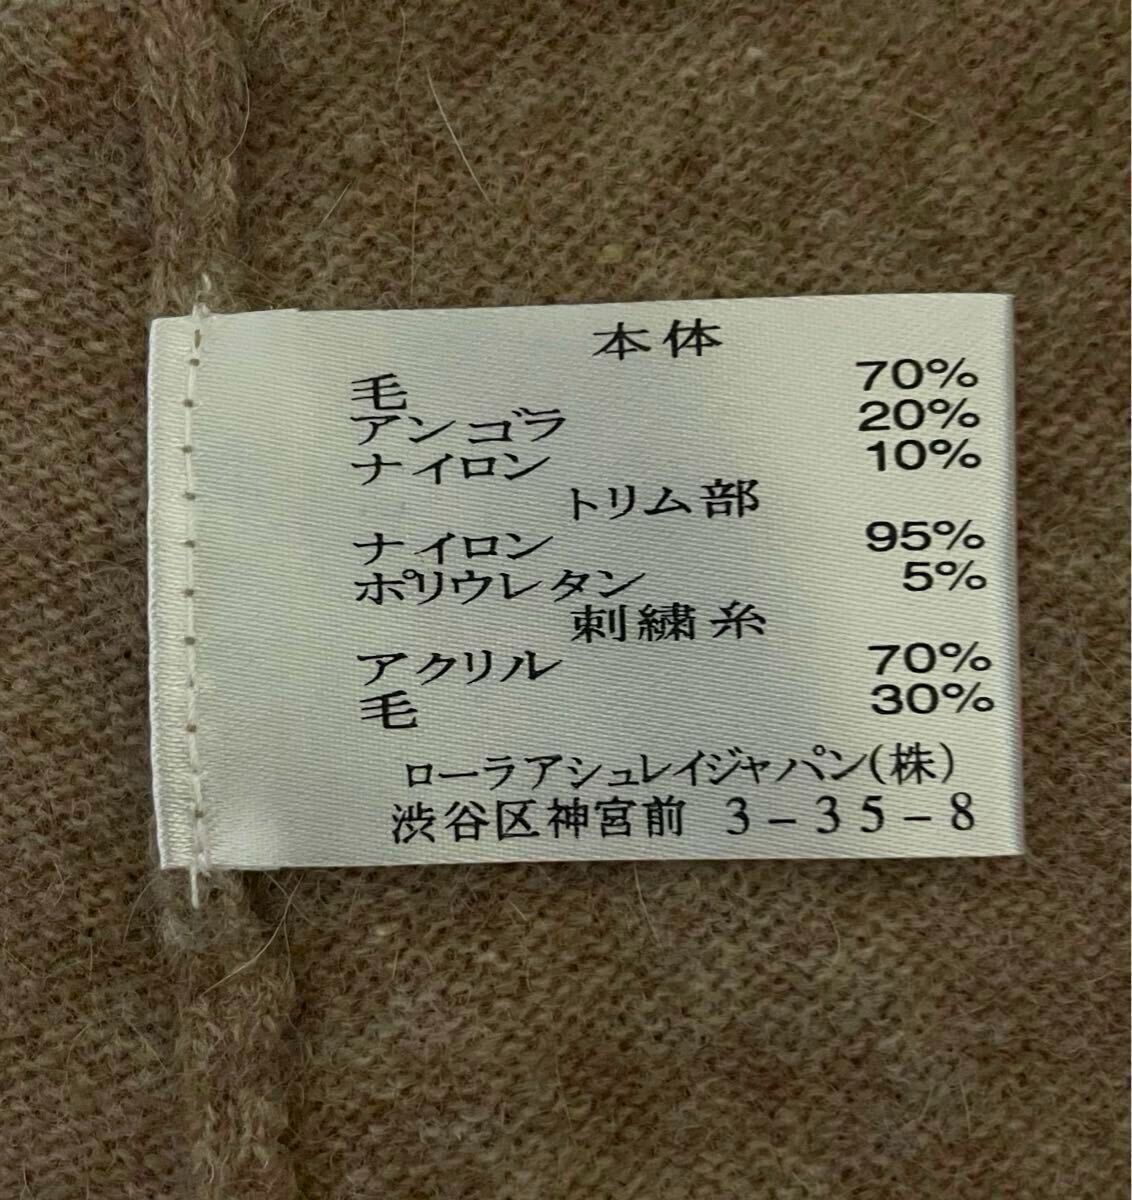 本体
毛 70%
アンゴラ 20%
ナイロン 10%
トリム部
ナイロン 95%
ポリウレタン 5%
刺繍糸
アクリル 70%
毛 30%
ローラアシュレイジャパン(株)
渋谷区神宮前 3-35-8